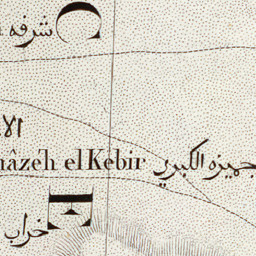 شرفه
الا
hâzeh el Kébir جهيزه الكبري
خراب